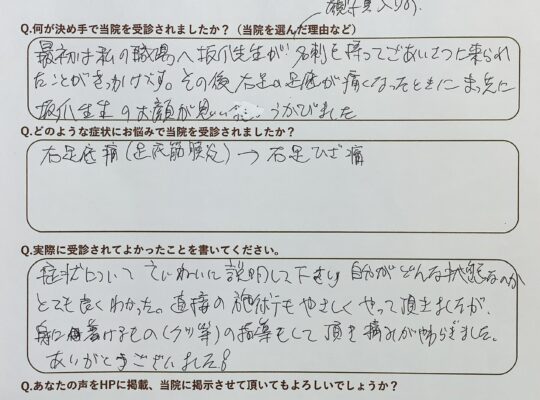 顔写真入りの
Q.何が決め手で当院を受診されましたか？（当院を選んだ理由など）
最初は私の職場へ坂爪先生が名刺を持ってごあいさつに来られ
たことがきっかけです。その後右足の足底が痛くなったときにまっ先に
坂爪先生のお顔が思い うかびました
Q.どのような症状にお悩みで当院を受診されましたか？
右足底痛（足底筋膜炎）→ 右足ひざ痛
Q.実際に受診されてよかったことを書いてください。
症状について ていねいに説明して下さり 自分がどんな状態なのか
とても良くわかった。直接の施術もやさしくやって頂きましたが、
身に着けるもの（クツ等）の指導もして頂き痛みがやわらぎました。
ありがとうございました！
Q.あなたの声をHPに掲載、当院に掲示させて頂いてもよろしいでしょうか？